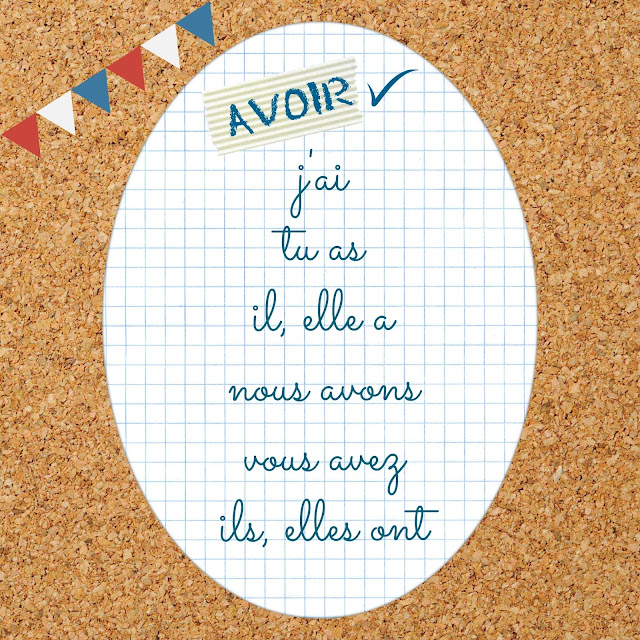 AVOIR
j'ai
tu as
il, elle a
nous avons
vous avez
ils, elles ont